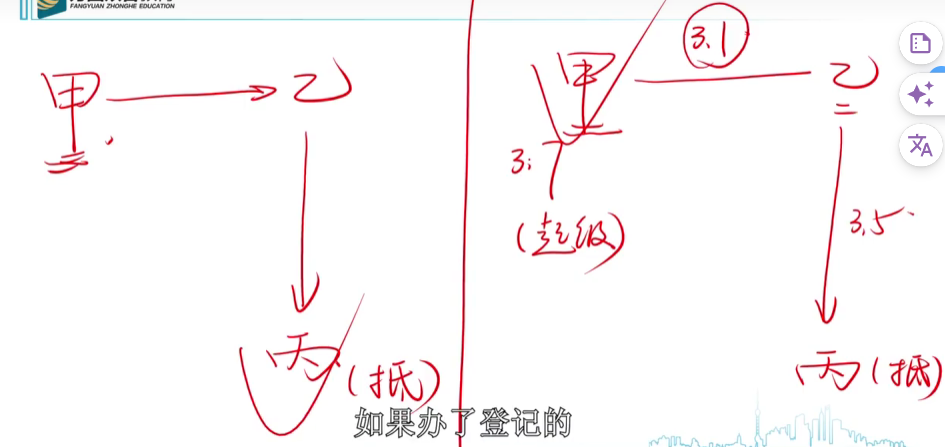 FANGYUAN ZHONGHE EDUCATION
甲 乙
丙 (抵)
甲 3.1 乙
3.7
(超级)
3.5
丙 (抵)
如果办了登记的